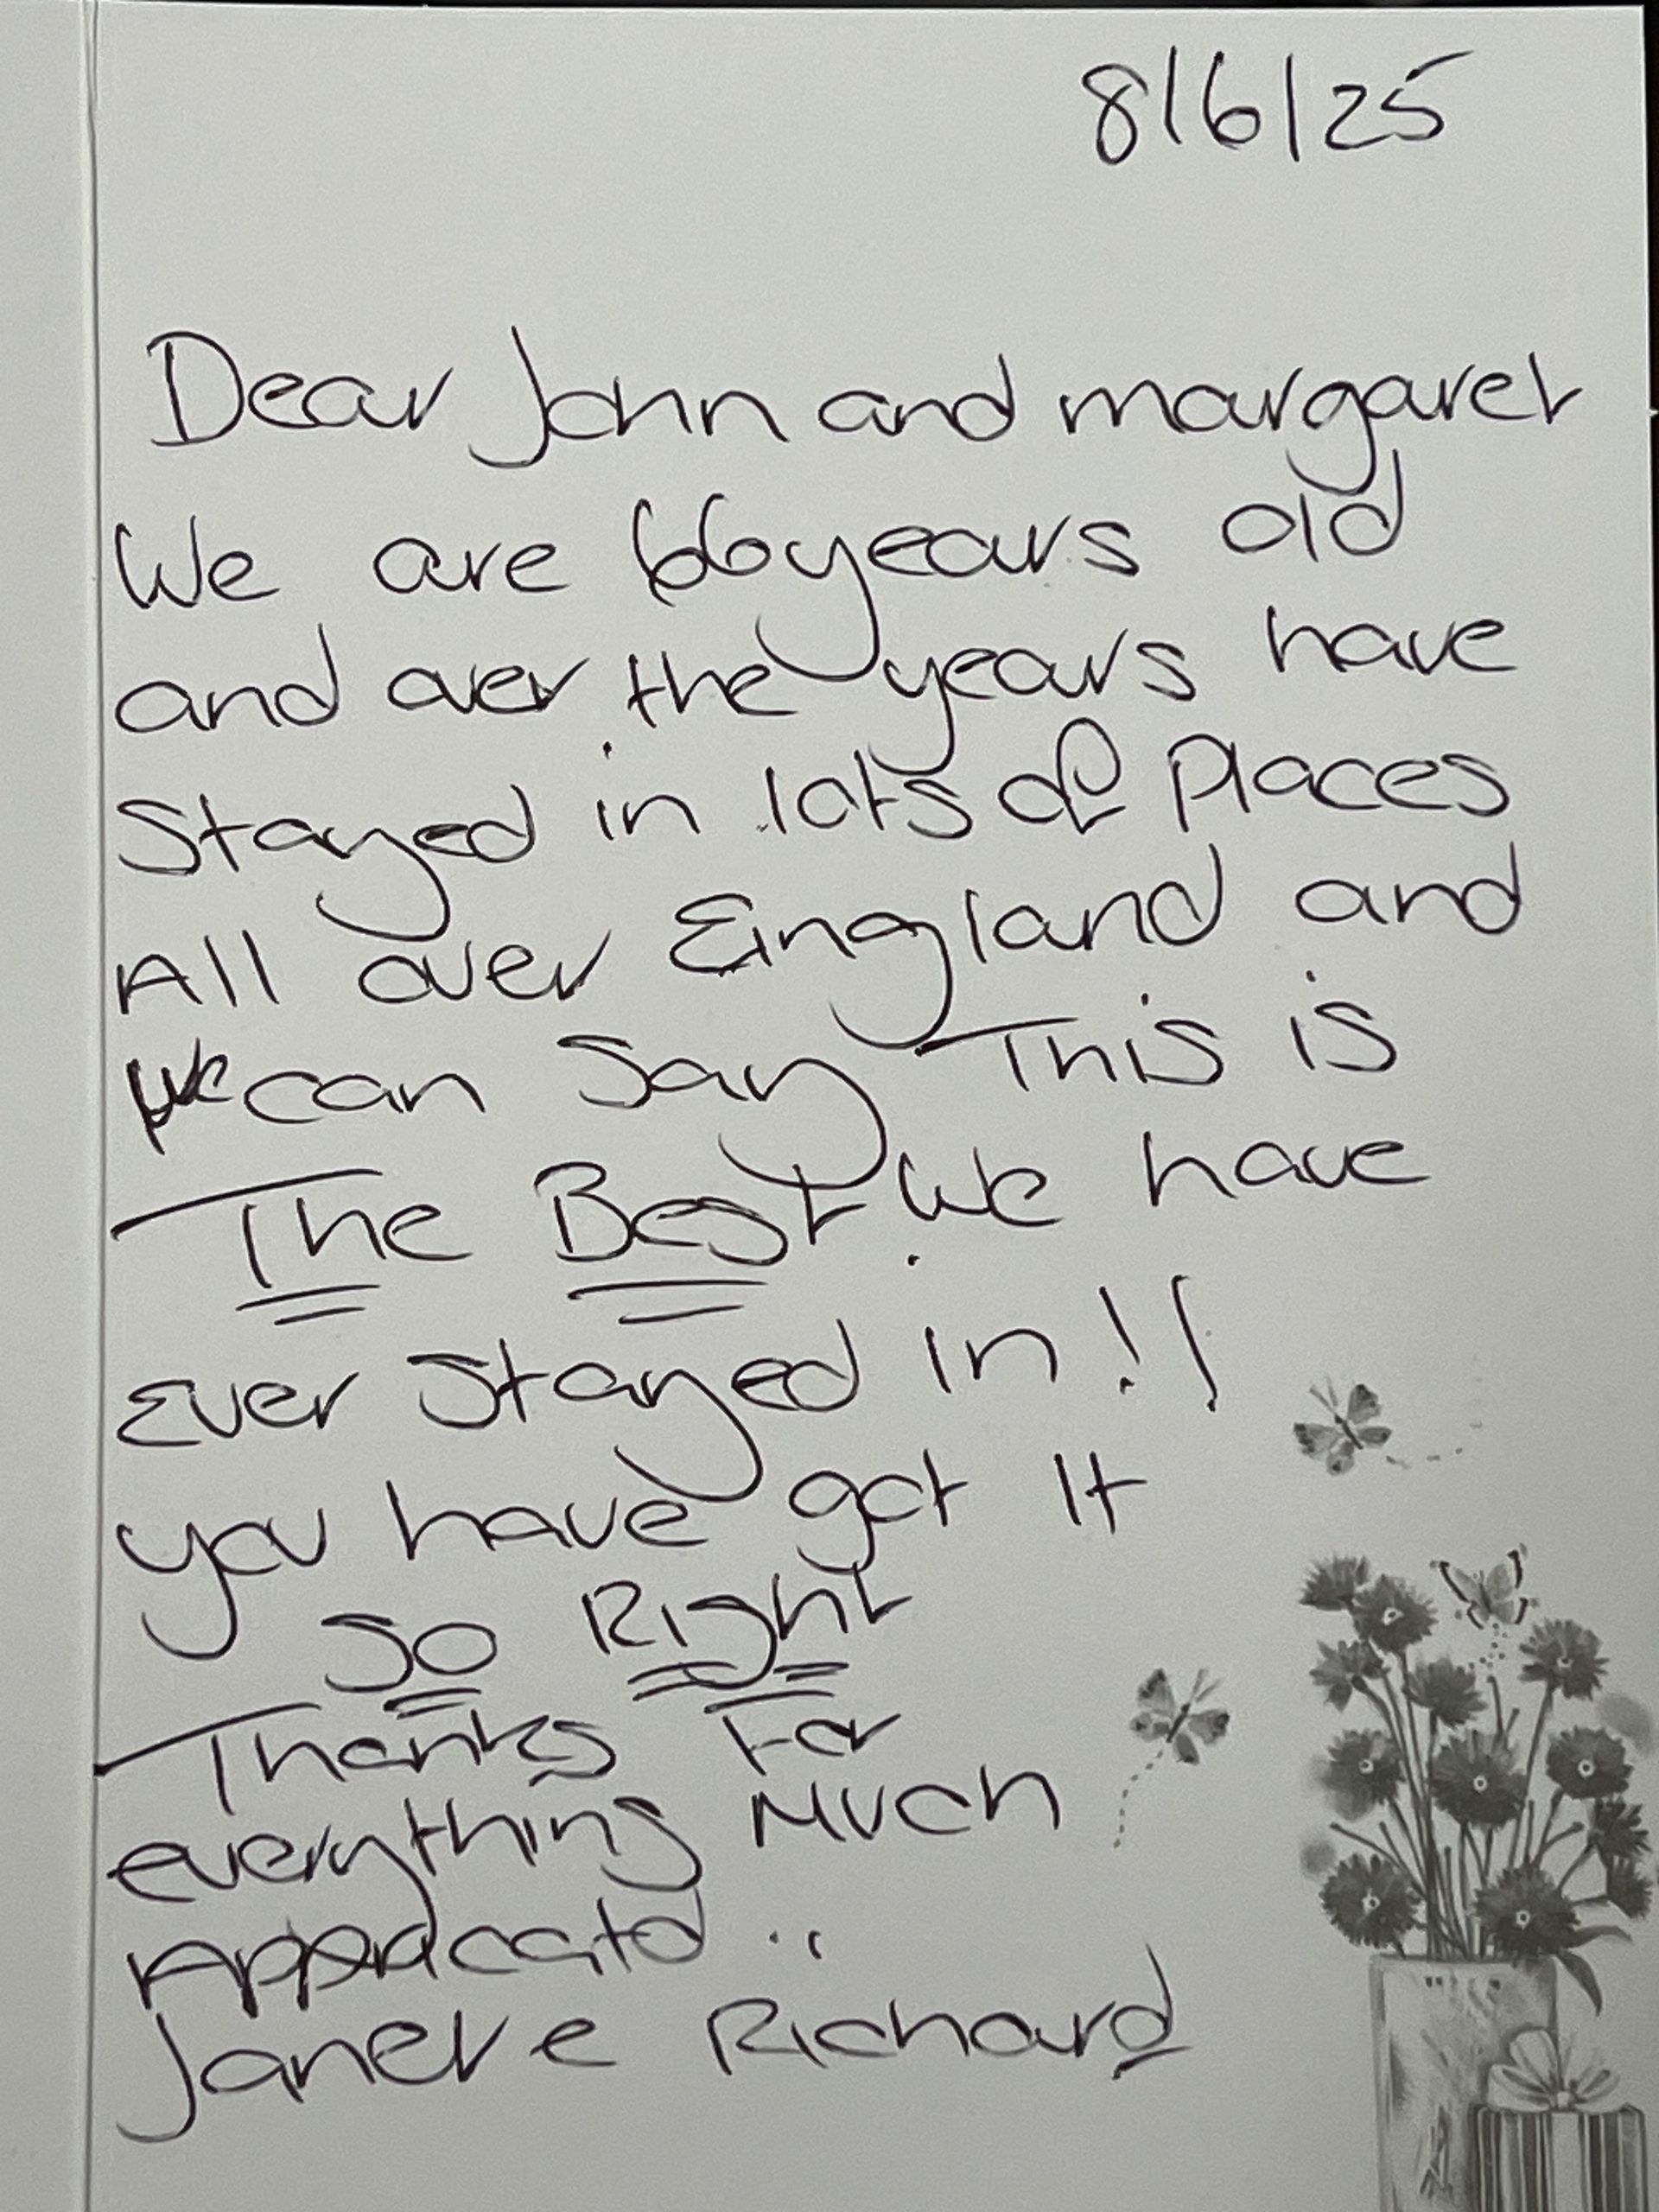 8/6/25
Dear John and margaret
We are 66 years old
and over the years have
Stayed in lots of Places
All over England and
we can say This is
The Best. We have
Ever Stayed in!!
you have got It
So Right
Thanks For
everything Much
Janet e Richard